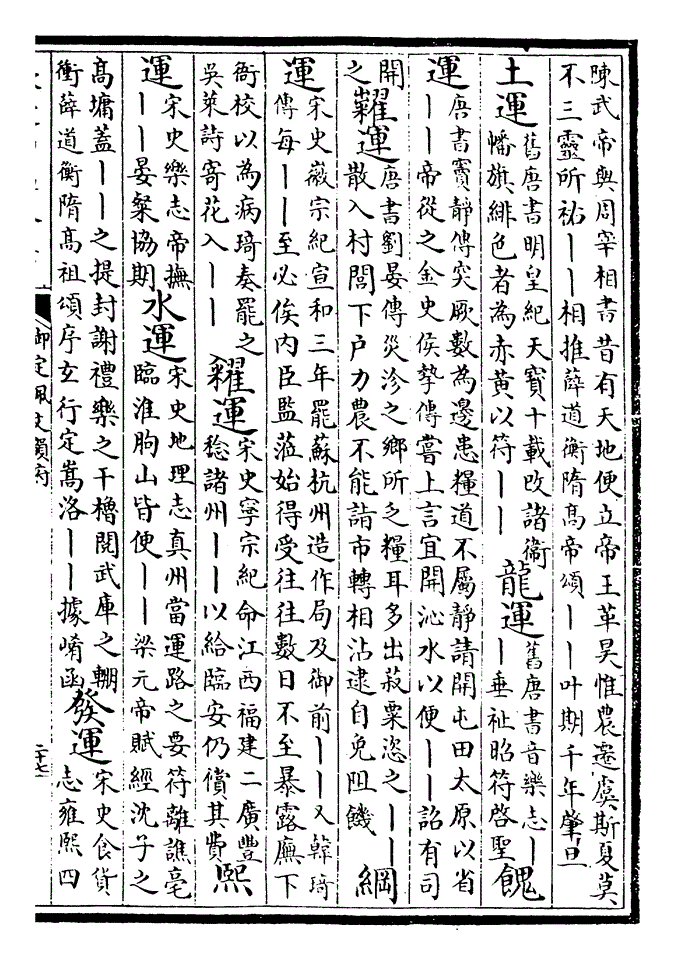 陳武帝與周宰相書昔有天地便立帝王革昊惟農遷虞斯夏莫
不三靈所祐||相推薛道衡隋髙帝頌||叶期千年肇旦
土運
舊唐書明皇紀天寶十載改諸衞
幡旗緋色者為赤黄以符||
龍運
舊唐書音樂志|
|垂祉昭符啓聖
餽
運
唐書竇靜傳突厥數為邊患糧道不屬靜請開屯田太原以省
||帝從之金史侯摯傳嘗上言宜開沁水以便||詔有司
開
之
糴運
唐書劉晏傳災沴之鄉所乏糧耳多出菽粟恣之||
散入村閭下户力農不能詣市轉相沾逮自免阻饑
綱
運
宋史徽宗紀宣和三年罷蘇杭州造作局及御前||又韓琦
傳每||至必俟内臣監蒞始得受往往數日不至暴露廡下
衙校以為病琦奏罷之
吳萊詩寄花入||
糴運
宋史寧宗紀命江西福建二廣豐
稔諸州||以給臨安仍償其費
熙
運
宋史樂志帝撫
||晏粲協期
水運
宋史地理志真州當運路之要符離譙亳
臨淮朐山皆便||梁元帝賦經沈子之
髙墉蓋||之提封謝禮樂之干櫓閱武庫之輣
衝薛道衡隋髙祖頌序玄行定嵩洛||據崤函
發運
宋史食貨
志雍熙四
御定佩文韻府
二十七